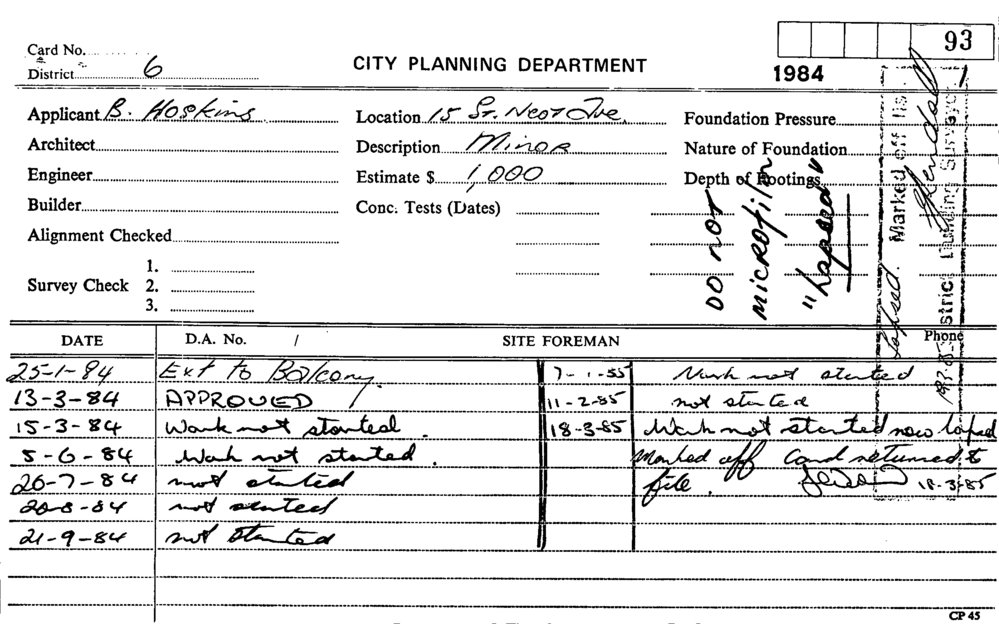 93
Card No.
District 6
CITY PLANNING DEPARTMENT
1984
Applicant B. Hoskins
Location 15 St. Neot Ave.
Foundation Pressure
Architect
Description Minor
Nature of Foundation
Engineer
Estimate $ 1,000
Depth of Footings
Builder
Conc. Tests (Dates)
Alignment Checked
Survey Check
1.
2.
3.
DO NOT
MICROFILM
"Lapsed"
Lapsed. Marked off
District Building Surveyor
DATE D.A. No. SITE FOREMAN Phone
25-1-84 Ext to Balcony. 7-1-85 Work not started
13-3-84 APPROVED 11-2-85 not started
15-3-84 Work not started. 18-3-85 Work not started now lapsed
5-6-84 Work not started. Marked off Card returned to
26-7-84 not started file. 18-3-85
20-8-84 not started
21-9-84 not started
CP 45